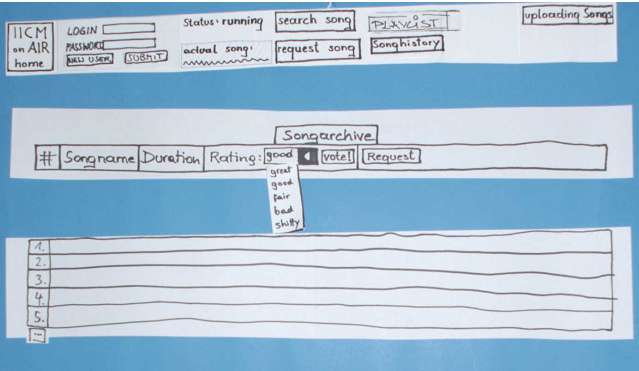 IICM
on AIR
home
LOGIN
PASSWORD
NEW USER
SUBMIT
Status: running
actual song:
search song
request song
PLAYLIST
Songhistory
uploading Songs
Songarchive
# Songname Duration Rating: good vote! Request
great
good
fair
bad
shitty
1.
2.
3.
4.
5.
...